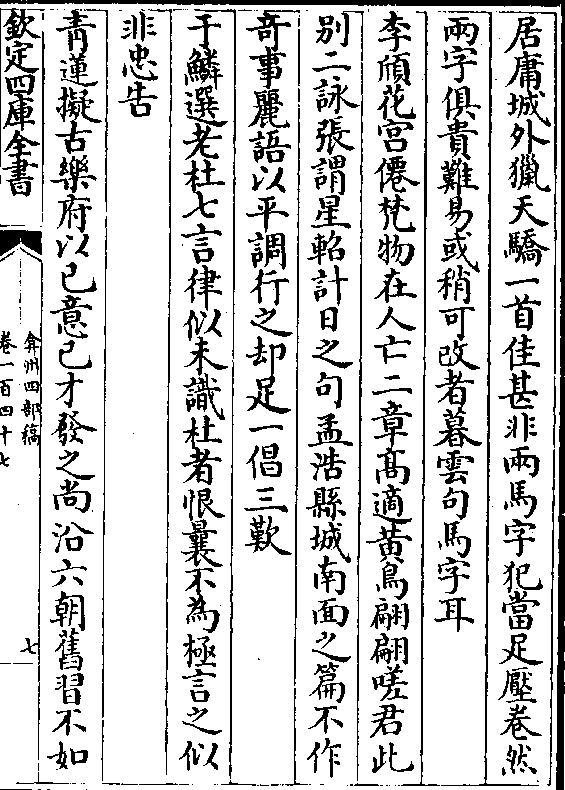 居庸城外獵天驕一首佳甚非兩馬字犯當足壓卷然
兩字俱貴難易或稍可改者暮雲句馬字耳
李頎花宮僊梵物在人亡二章髙適黄鳥翩翩嗟君此
别二詠張謂星軺計日之句孟浩縣城南面之篇不作
奇事麗語以平調行之却足一倡三歎
于鱗選老杜七言律似未識杜者恨曩不為極言之似
非忠告
青蓮擬古樂府以己意己才發之尚沿六朝舊習不如
欽定四庫全書
弇州四部稿
卷一百四十七
七